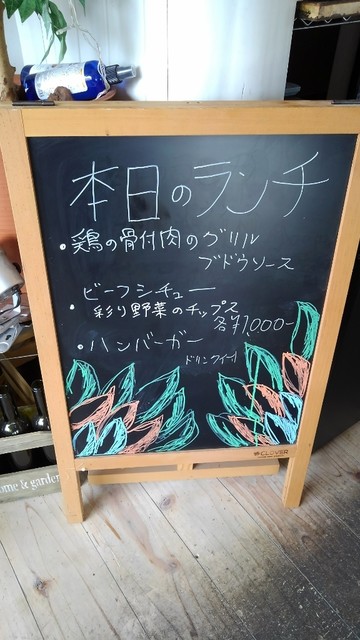 本日のランチ
・鶏の骨付肉のグリル
ブドウソース
ビーフシチュー
・彩り野菜のチップス
各¥1,000-
・ハンバーガー
CLOVER
me & garden